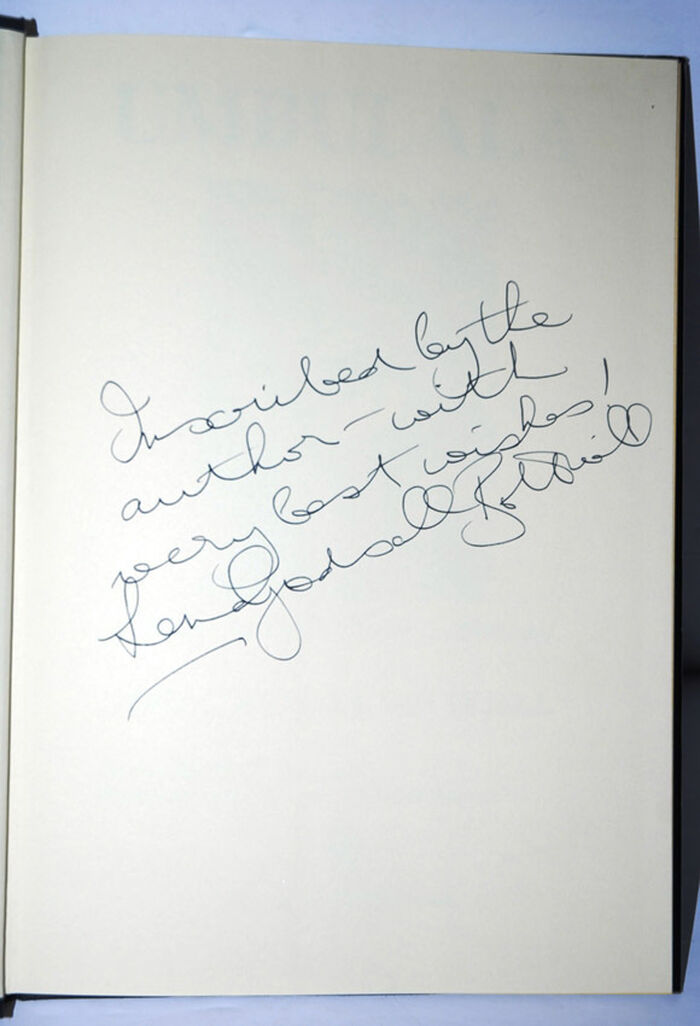 Inscribed by the
author – with
very best wishes!
Len Godsall Bottriell